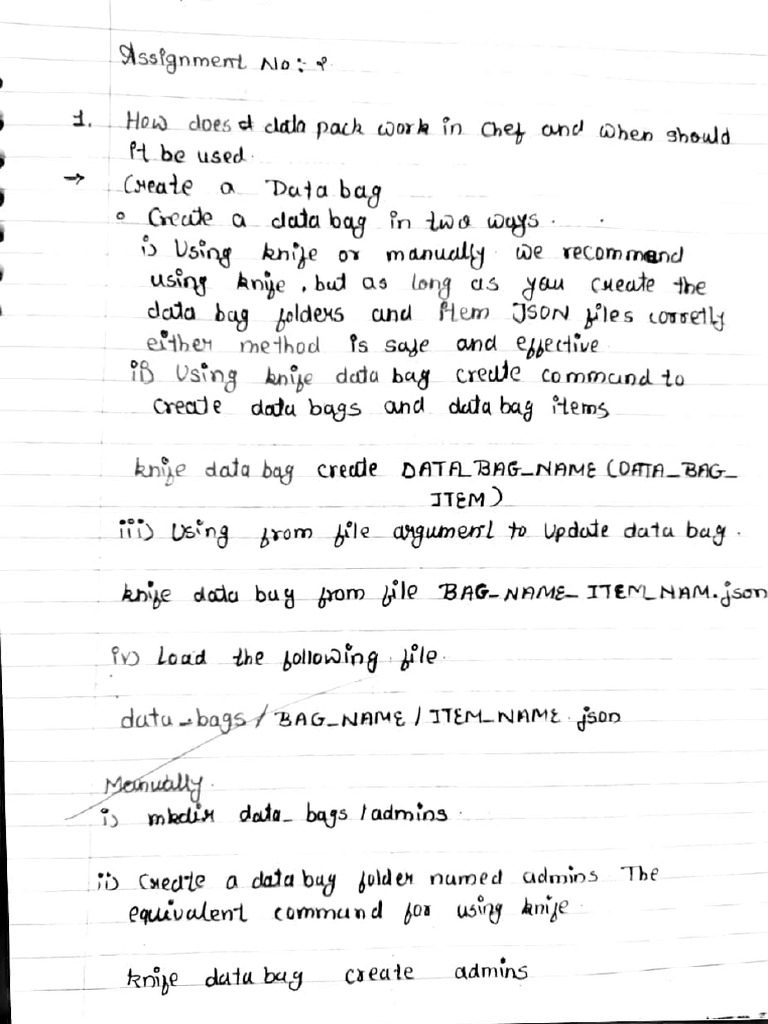 Assignment No:- 
1. How does data pack work in Chef and when should
it be used.
→ Create a Data bag
• Create a data bag in two ways.
i) Using knife or manually we recommend
using knife, but as long as you create the
data bag folders and item JSON files corretly
either method is safe and effective
ii) Using knife data bag create command to
create data bags and data bag items
knife data bag create DATA_BAG_NAME (DATA_BAG_
ITEM)
iii) Using from file argument to Update data bag.
knife data bag from file BAG_NAME_ ITEM_NAM.json
iv) Load the following file.
data_bags / BAG_NAME / ITEM_NAME.json
Manually.
i) mkdir data_bags / admins.
ii) Create a data bag folder named admins The
equivalent command for using knife.
knife data bag create admins